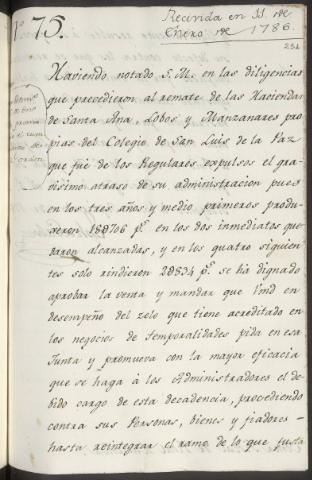 Nº 75.
Recivida en 11. de
Enero de 1786.
Haviendo notado S.M. en las diligencias
que precedieron al remate de las Haciendas
de Santa Ana, Lobos y Manzanares pro-
pias del Colegio de San Luis de la Paz
que fue de los Regulares expulsos el gra-
visimo atraso de su administracion pues
en los tres años y medio primeros produ-
xeron 18℧706 pˢ. en los dos inmediatos que-
daron alcanzadas, y en los quatro siguien-
tes solo rindieron 2℧834 pˢ. se ha dignado
aprobar la venta y mandar que Vmd en
desempeño del zelo que tiene acreditado en
los negocios de temporalidades pida en esa
Junta y promueva con la mayor eficacia
que se haga á los Administradores el de-
bido cargo de esta decadencia, procediendo
contra sus Personas, bienes y fiadores -
hasta reintegrar el ramo de lo que justa